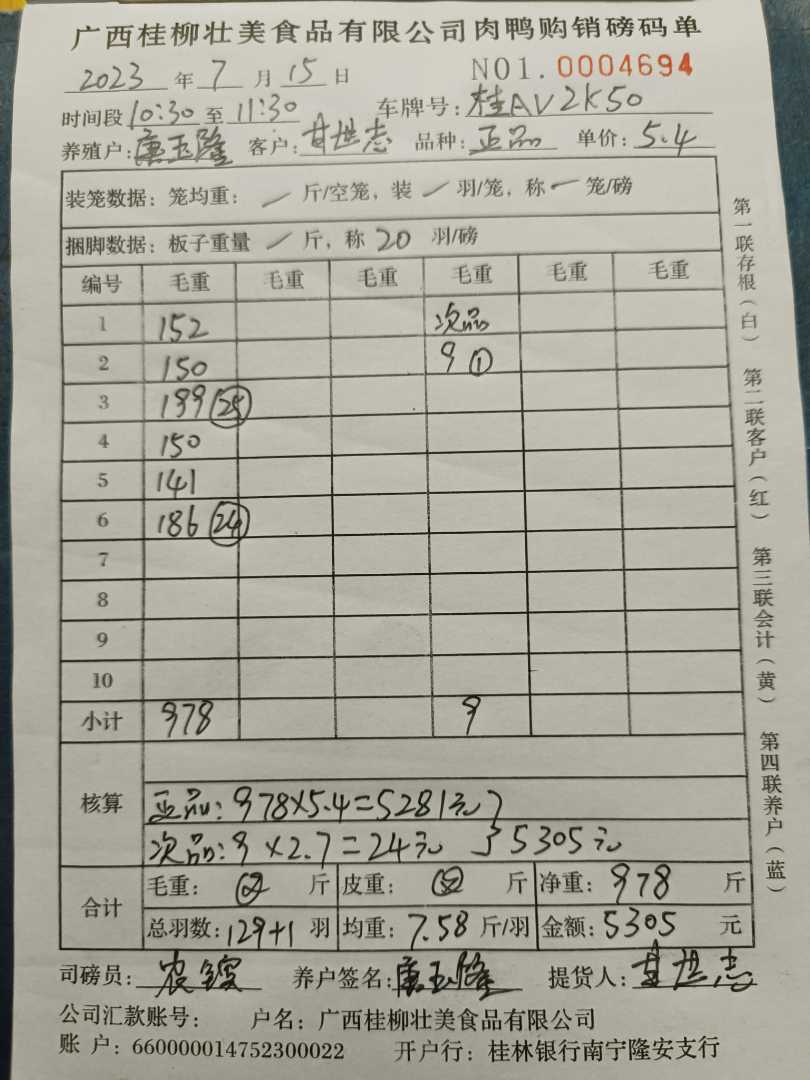 广西桂柳壮美食品有限公司肉鸭购销磅码单
2023 年 7 月 15 日 NO1. 0004694
时间段 10:30 至 11:30 车牌号: 桂AV2K50
养殖户: 唐玉隆 客户: 甘世志 品种: 正品 单价: 5.4
装笼数据: 笼均重: / 斤/空笼, 装 / 羽/笼, 称 一 笼/磅
捆脚数据: 板子重量 / 斤, 称 20 羽/磅
编号 毛重 毛重 毛重 毛重 毛重 毛重
1 152 次品
2 150 9 ①
3 199 (25)
4 150
5 141
6 186 (24)
7
8
9
10
小计 978 9
核算
正品: 978×5.4=5281元 }
次品: 9×2.7=24元 } 5305元
合计
毛重: 斤 皮重: 斤 净重: 978 斤
总羽数: 129+1 羽 均重: 7.58 斤/羽 金额: 5305 元
司磅员: 养户签名: 唐玉隆 提货人: 甘世志
公司汇款账号: 户名: 广西桂柳壮美食品有限公司
账 户: 660000014752300022 开户行: 桂林银行南宁隆安支行
第一联存根(白) 第二联客户(红) 第三联会计(黄) 第四联养户(蓝)